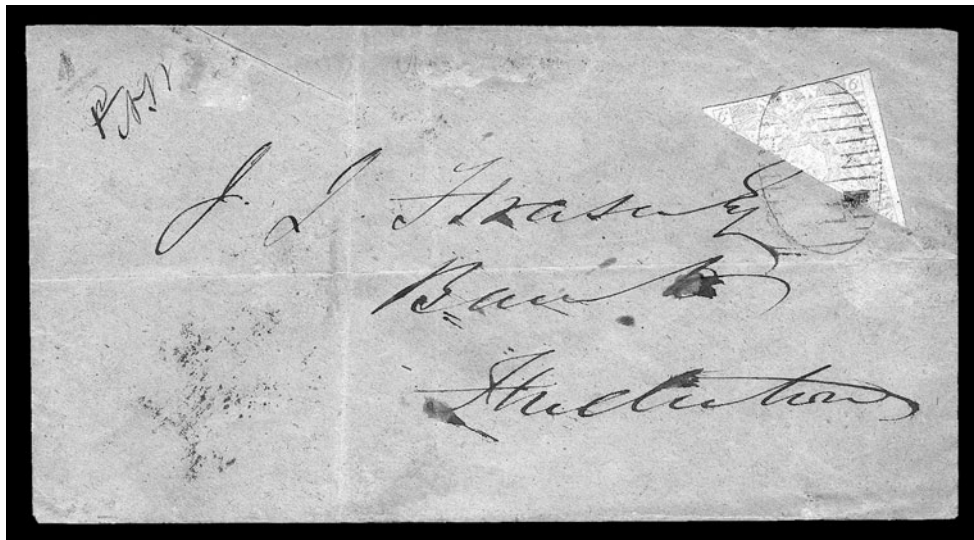 J. L. Fraser Esq
Bank
Fredericton